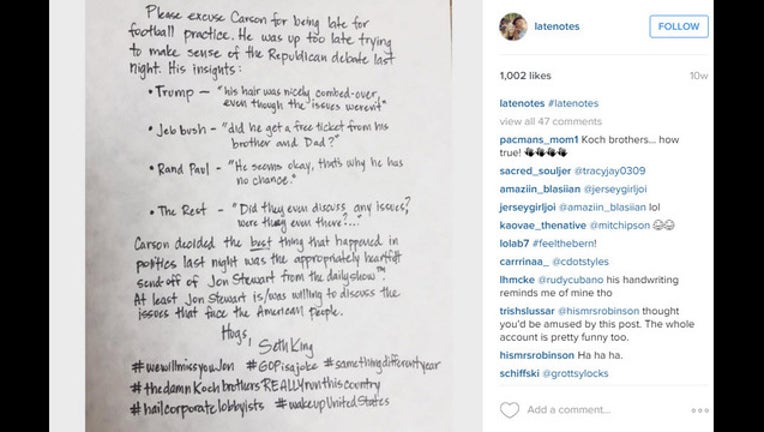 Please excuse Carson for being late for
football practice. He was up too late trying
to make sense of the Republican debate last
night. His insights:
• Trump – "his hair was nicely combed-over,
even though the issues weren't"
• Jeb bush – "did he get a free ticket from his
brother and Dad?"
• Rand Paul – "He seems okay, that's why he has
no chance."
• The Rest – "Did they even discuss any issues?
were they even there?..."
Carson decided the best thing that happened in
politics last night was the appropriately heartfelt
send-off of Jon Stewart from the dailyshow™.
At least Jon Stewart is/was willing to discuss the
issues that face the American people.
Hugs,
Seth King
#wewillmissyouJon #GOPisajoke #samethingdifferentyear
#thedamnKochbrothersREALLYrunthiscountry
#hailcorporatelobbyists #wakeupUnitedStates
latenotes
FOLLOW
1,002 likes
10w
latenotes #latenotes
view all 47 comments
pacmans_mom1 Koch brothers... how
true!
sacred_souljer @tracyjay0309
amaziin_blasiian @jerseygirljoi
jerseygirljoi @amaziin_blasiian lol
kaovae_thenative @mitchipson
lolab7 #feelthebern!
carrrinaa_ @cdotstyles
lhmcke @rudycubano his handwriting
reminds me of mine tho
trishslussar @hismrsrobinson thought
you'd be amused by this post. The whole
account is pretty funny too.
hismrsrobinson Ha ha ha.
schiffski @grottsylocks
Add a comment...